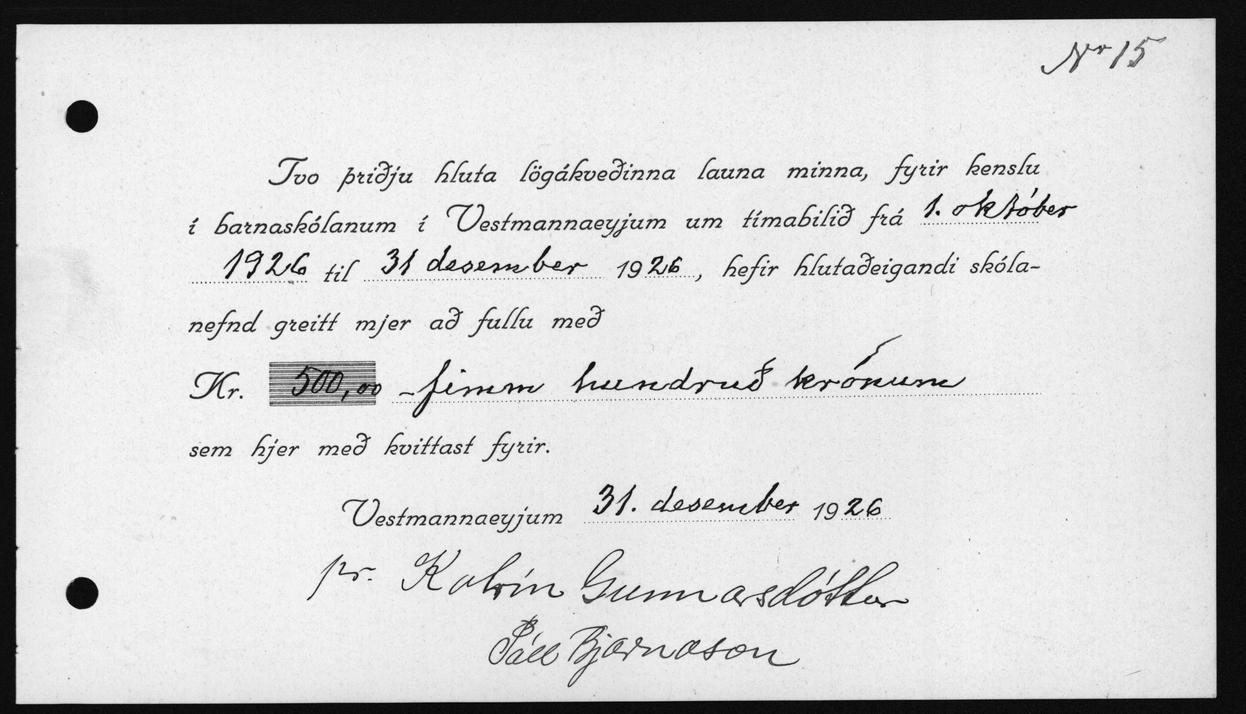 Nr 15
Tvo þriðju hluta lögákveðinna launa minna, fyrir kenslu
í barnaskólanum í Vestmannaeyjum um tímabilið frá 1. október
1926 til 31 desember 1926, hefir hlutaðeigandi skóla-
nefnd greitt mjer að fullu með
Kr. 500,00 - fimm hundruð krónum
sem hjer með kvittast fyrir.
Vestmannaeyjum 31. desember 1926
pr. Katrín Gunnarsdóttur
Páll Bjarnason